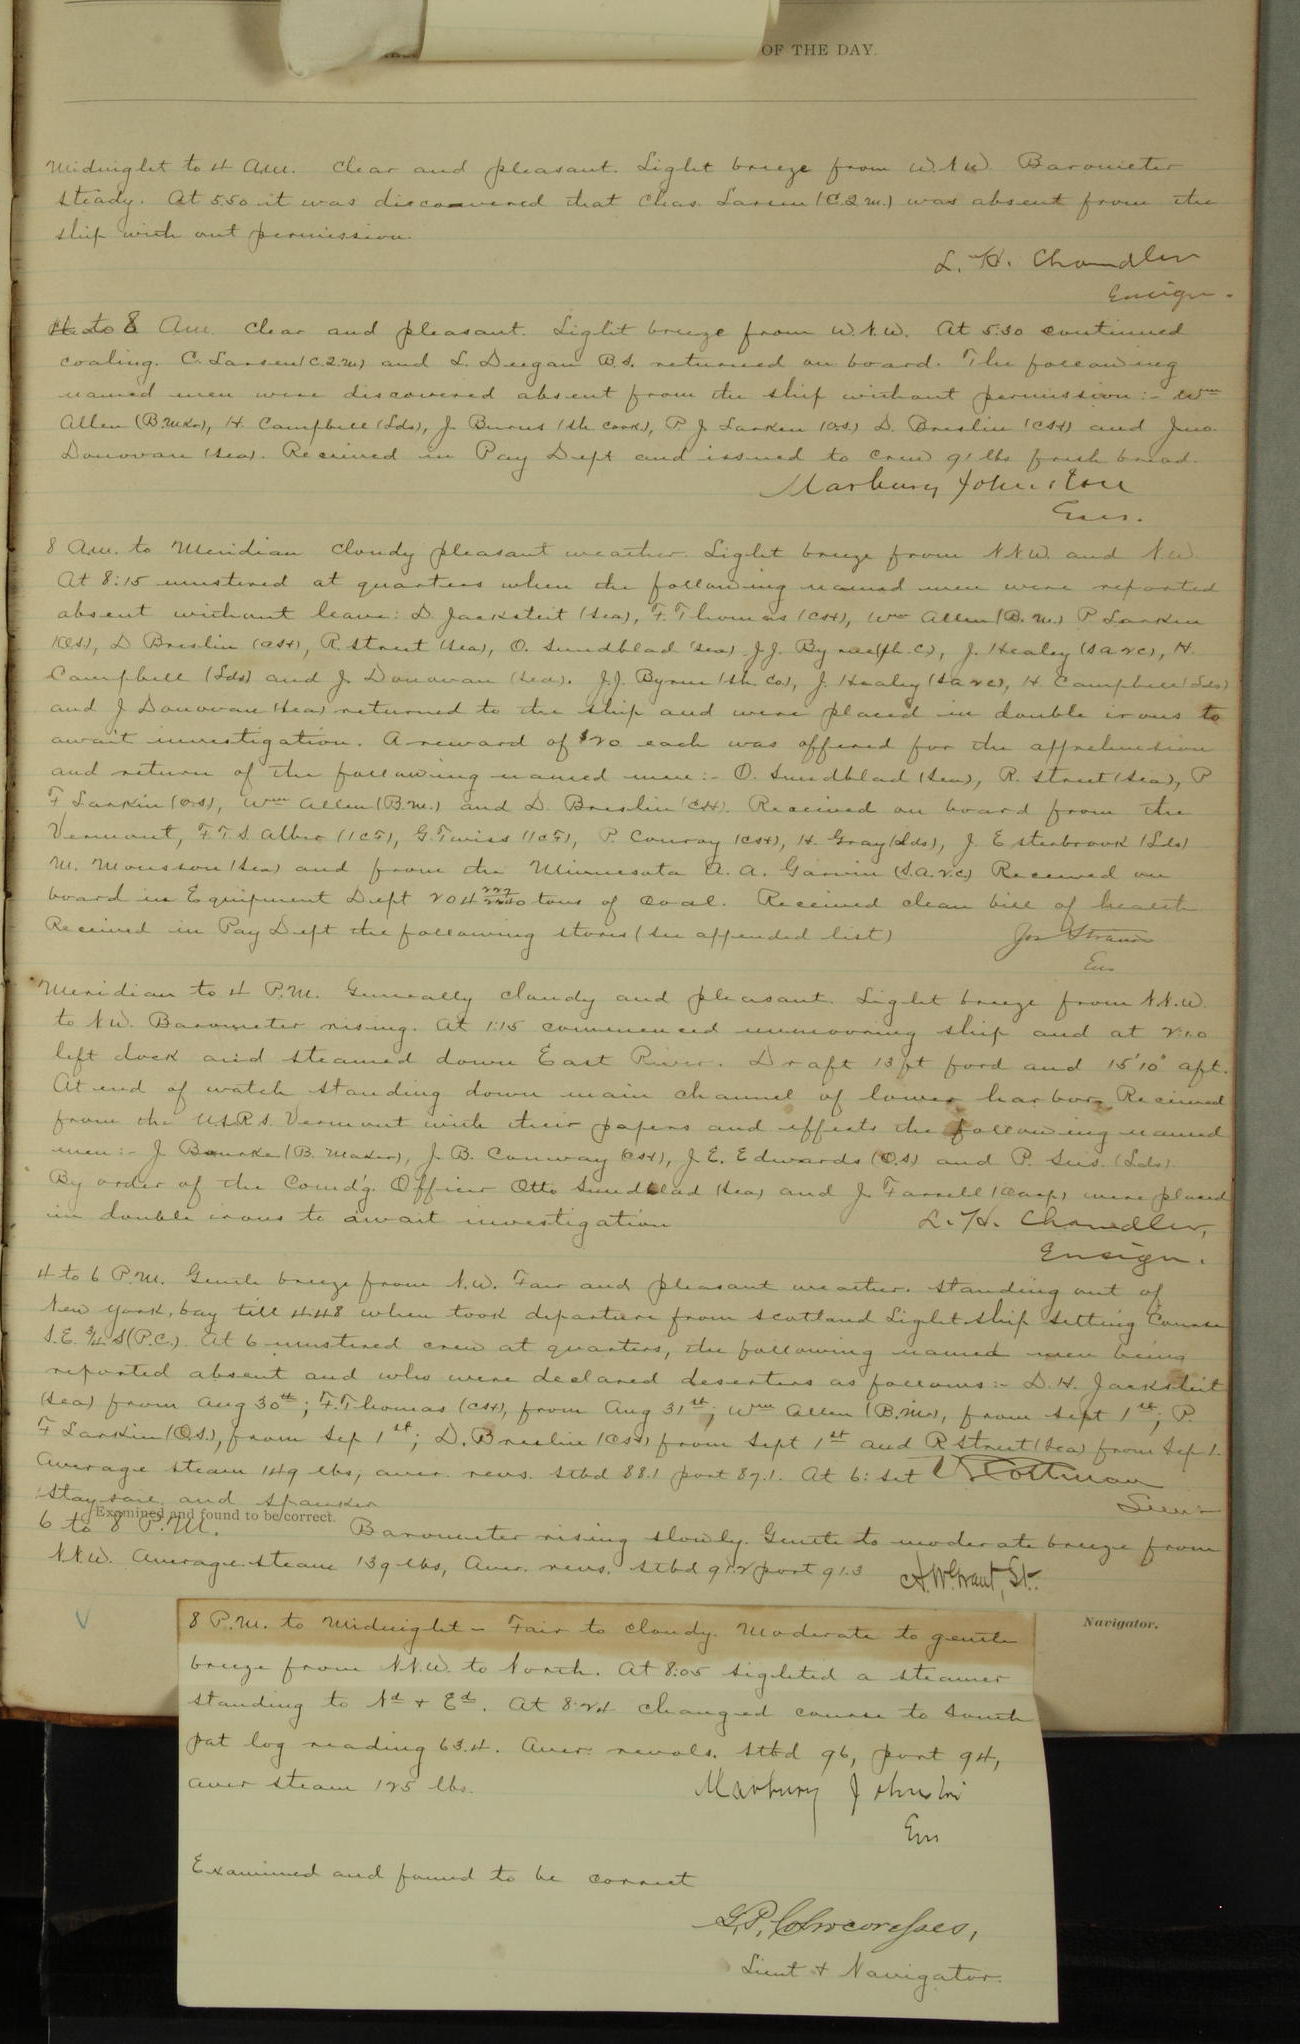 OF THE DAY.
Midnight to 4 A.M. Clear and pleasant. Light breeze from W.N.W. Barometer
steady. At 5.50 it was discovered that Chas. Larsen (C.2.M.) was absent from the
ship with out permission.
L. H. Chandler
Ensign.
4 to 8 A.M. Clear and pleasant. Light breeze from W.N.W. At 5:30 continued
coaling. C. Larsen (C.2.M) and L. Deegan B.S. returned on board. The following
named men were discovered absent from the ship without permission:- Wm
Allen (B.Mkr), H. Campbell (Lds), J. Burns (Sh. Cook), P. J. Larken (O.S.) D. Breslin (CH) and Jno.
Donovan (Sea). Received in Pay Dept and issued to crew 91 lbs fresh bread.
Marbury Johnston
Ens.
8 A.M. to Meridian Cloudy pleasant weather. Light breeze from N.N.W. and N.W.
At 8:15 mustered at quarters when the following named men were reported
absent without leave: D. Jacksteit (Sea), F. Thomas (CH), Wm Allen (B.M.) P Larken
(OS), D Breslin (CH), R Street (Sea), O. Sundblad (Sea) J.J. Byrne (Sh.C.), J. Healey (S a 2 c), H.
Campbell (Lds) and J. Donovan (Sea). J.J. Byrne (Sh. Co), J. Healey (S a 2 c), H. Campbell (Lds)
and J Donovan (Sea) returned to the ship and were placed in double irons to
await investigation. A reward of $20 each was offered for the apprehension
and return of the following named men:- O. Sundblad (Sea), R. Street (Sea), P
F Larkin (O.S), Wm Allen (B.M.) and D. Breslin (CH). Received on board from the
Vermont, F.T.S. Alber (1CF), G. Twiss (1CF), P. Conroy (CH), H. Gray (Lds), J. Esterbrook (Lds)
M. Monsson (Sea) and from the Minnesota A. A. Garvin (S.A.2.C.) Received on
board in Equipment Dept 204 222/2240 tons of coal. Received clean bill of health
Received in Pay Dept the following stores (see appended list)
Jos Strauss
Ens
Meridian to 4 P.M. Generally cloudy and pleasant. Light breeze from N.N.W.
to N.W. Barometer rising. At 1:15 commenced unmooring ship and at 2:10
left dock and steamed down East River. Draft 13 ft ford and 15' 10" aft.
At end of watch standing down main channel of lower harbor. Received
from the U.S.R.S. Vermont with their papers and effects the following named
men:- J. Bourke (B. Maker), J. B. Conway (CH), J. E. Edwards (O.S) and P. Seis (Lds).
By order of the Comd'g. Officer Otto Sundblad (Sea) and J. Farrell (Carp) were placed
in double irons to await investigation
L. H. Chandler,
Ensign.
4 to 6 P.M. Gentle breeze from N.W. Fair and pleasant weather. Standing out of
New York bay till 4.48 when took departure from Scotland Light ship setting Course
S.E. 3/4 S (P.C.). At 6 mustered crew at quarters, the following named men being
reported absent and who were declared deserters as follows:- D. H. Jacksteit
(Sea) from Aug 30th; F. Thomas (CH), from Aug 31st; Wm Allen (B.Mr), from Sept 1st; P.
F Larkin (O.S.), from Sep 1st; D. Breslin (CH) from Sept 1st and R Street (Sea) from Sep 1.
Average steam 149 lbs, aver. revs. Stbd 88.1 port 87.1. At 6: set
Staysail and Spanker
Cottman
Lieut
Examined and found to be correct.
6 to 8 P.M. Barometer rising slowly. Gentle to moderate breeze from
N.N.W. Average steam 139 lbs, Aver. revs. stbd 91.2 port 91.3
A. W. Grant, Lt.
Navigator.
8 P.M. to Midnight - Fair to cloudy. Moderate to gentle
breeze from N.N.W. to North. At 8:05 sighted a steamer
standing to Nd + Ed. At 8:24 changed course to South
pat log reading 63.4. Aver. revols. Stbd 96, port 94,
aver steam 125 lbs.
Marbury Johnston
Ens
Examined and found to be correct
G.P. Colvocoresses,
Lieut + Navigator.